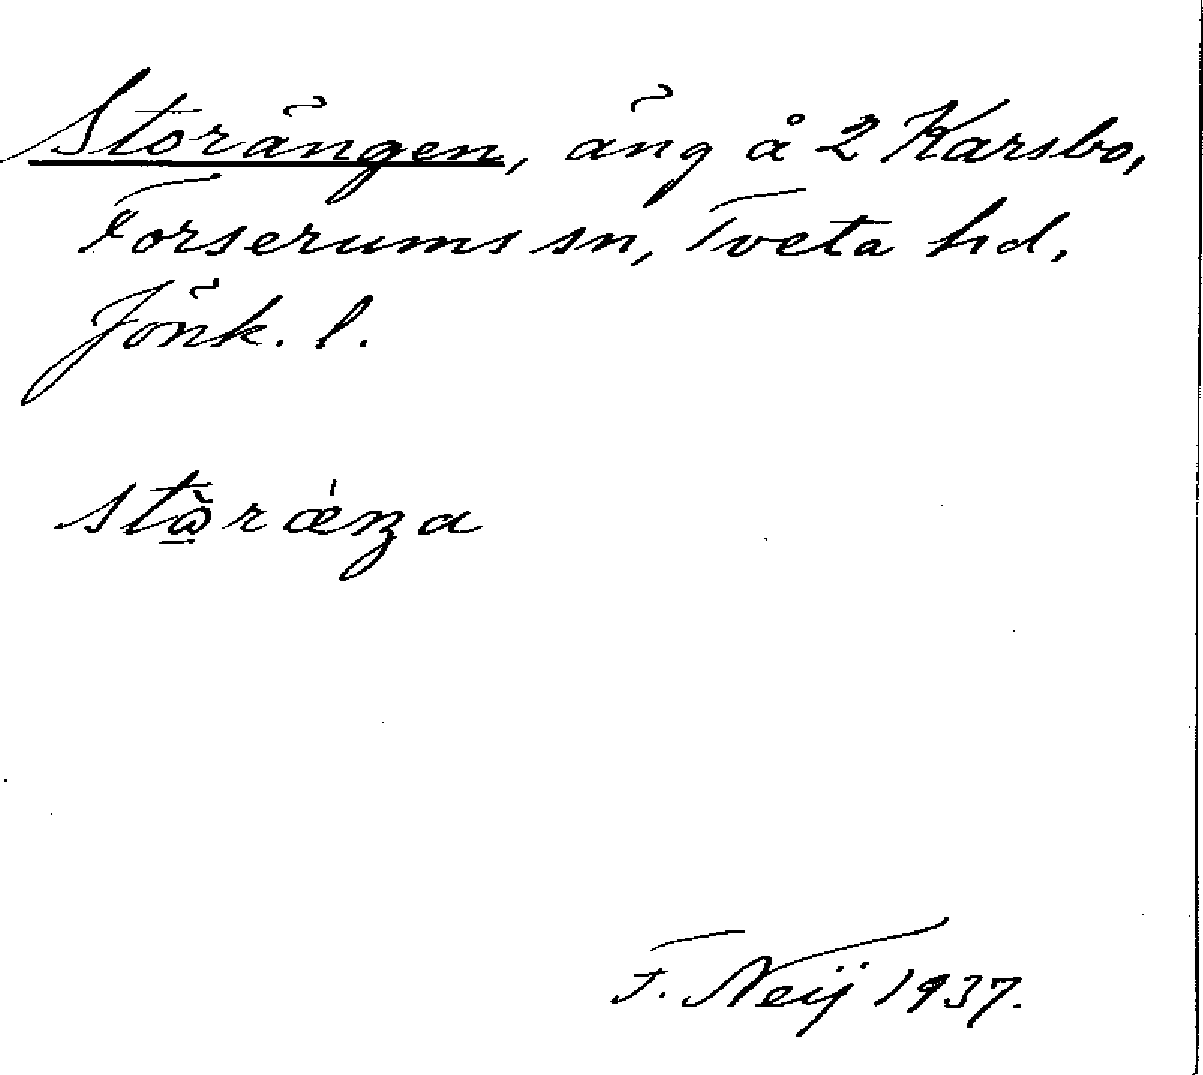 Storängen, äng å 2 Karsbo,
Forserums sn, Tveta hd,
Jönk. l.
F. Neij 1937.